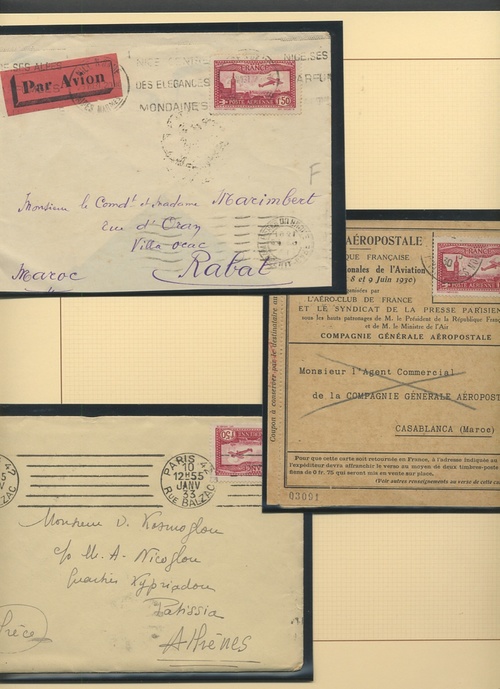 Par Avion
DES ELEGANCES
MONDAINES
NICE SES
FRANCE
POSTE AERIENNE 1f50
F
Monsieur le Comdt et madame Marimbert
rue d'Oran
Villa
Rabat
Maroc
AÉROPOSTALE
QUE FRANÇAISE
onales de l'Aviation
8 et 9 Juin 1930)
L'AÉRO-CLUB DE FRANCE
ET LE SYNDICAT DE LA PRESSE PARISIEN
sous les hauts patronages de M. le Président de la République Franç
et de M. le Ministre de l'Air
COMPAGNIE GÉNÉRALE AÉROPOSTALE
Coupon à conserver par le destinataire
Monsieur l'Agent Commercial
de la COMPAGNIE GÉNÉRALE AÉROPOST
CASABLANCA (Maroc)
Pour que cette carte soit retournée en France, à l'adresse indiquée au
l'expéditeur devra affranchir le verso au moyen de deux timbres-poste
de 0 fr. 75 qui seront mis en vente sur place.
(Voir autres renseignements au verso de cette
03091
PARIS 47
10
12H55
JANV
33
RUE BALZAC
Monsieur D. Kosmoglou
c/o M. A. Nicoglou
Quartier Kypriadou
Patissia
Athènes
Grèce